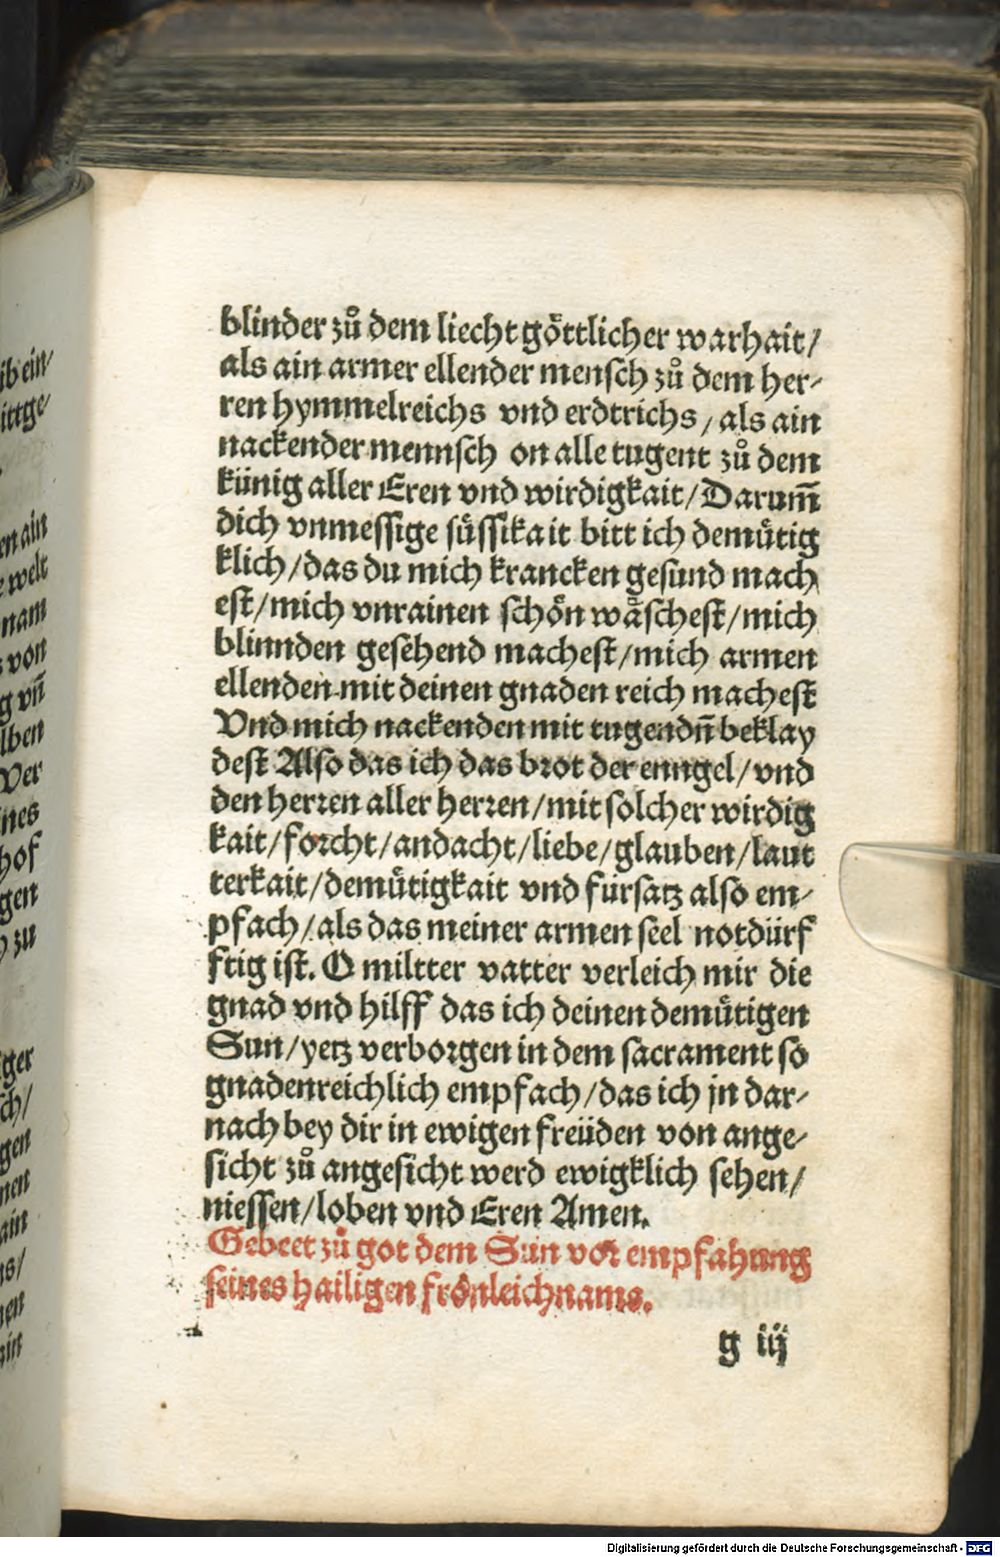 blinder zů dem liecht göttlicher warhait/
als ain armer ellender mensch zů dem her-
ren hymmelreichs vnd erdtrichs/ als ain
nackender mennsch on alle tugent zů dem
künig aller Eren vnd wirdigkait/Darum̄
dich vnmessige süssikait bitt ich demütig
klich/das du mich krancken gesund mach
est/mich vnrainen schön wäschest/mich
blinnden gesehend machest/mich armen
ellenden mit deinen gnaden reich machest
Vnd mich nackenden mit tugendn̄ beklay
dest Also das ich das brot der enngel/vnd
den herren aller herren/mit solcher wirdig
kait/forcht/andacht/liebe/glauben/laut
terkait/demütigkait vnd fürsatz also em-
pfach/als das meiner armen seel notdürf
ftig ist. O miltter vatter verleich mir die
gnad vnd hilff das ich deinen demütigen
Sun/yetz verborgen in dem sacrament so
gnadenreichlich empfach/das ich jn dar-
nach bey dir in ewigen freüden von ange-
sicht zů angesicht werd ewigklich sehen/
niessen/loben vnd Eren Amen.
Gebeet zů got dem Sun vor empfahung
seines hailigen fronleichnams.
g iij
ib ein/
ittge/
en ain
e welt
nam
s von
g vn̄
lben
Ver
ines
hof
gen
zu
iger
ch/
gen
nen
ain
s/
nen
ain
Digitalisierung gefördert durch die Deutsche Forschungsgemeinschaft - DFG